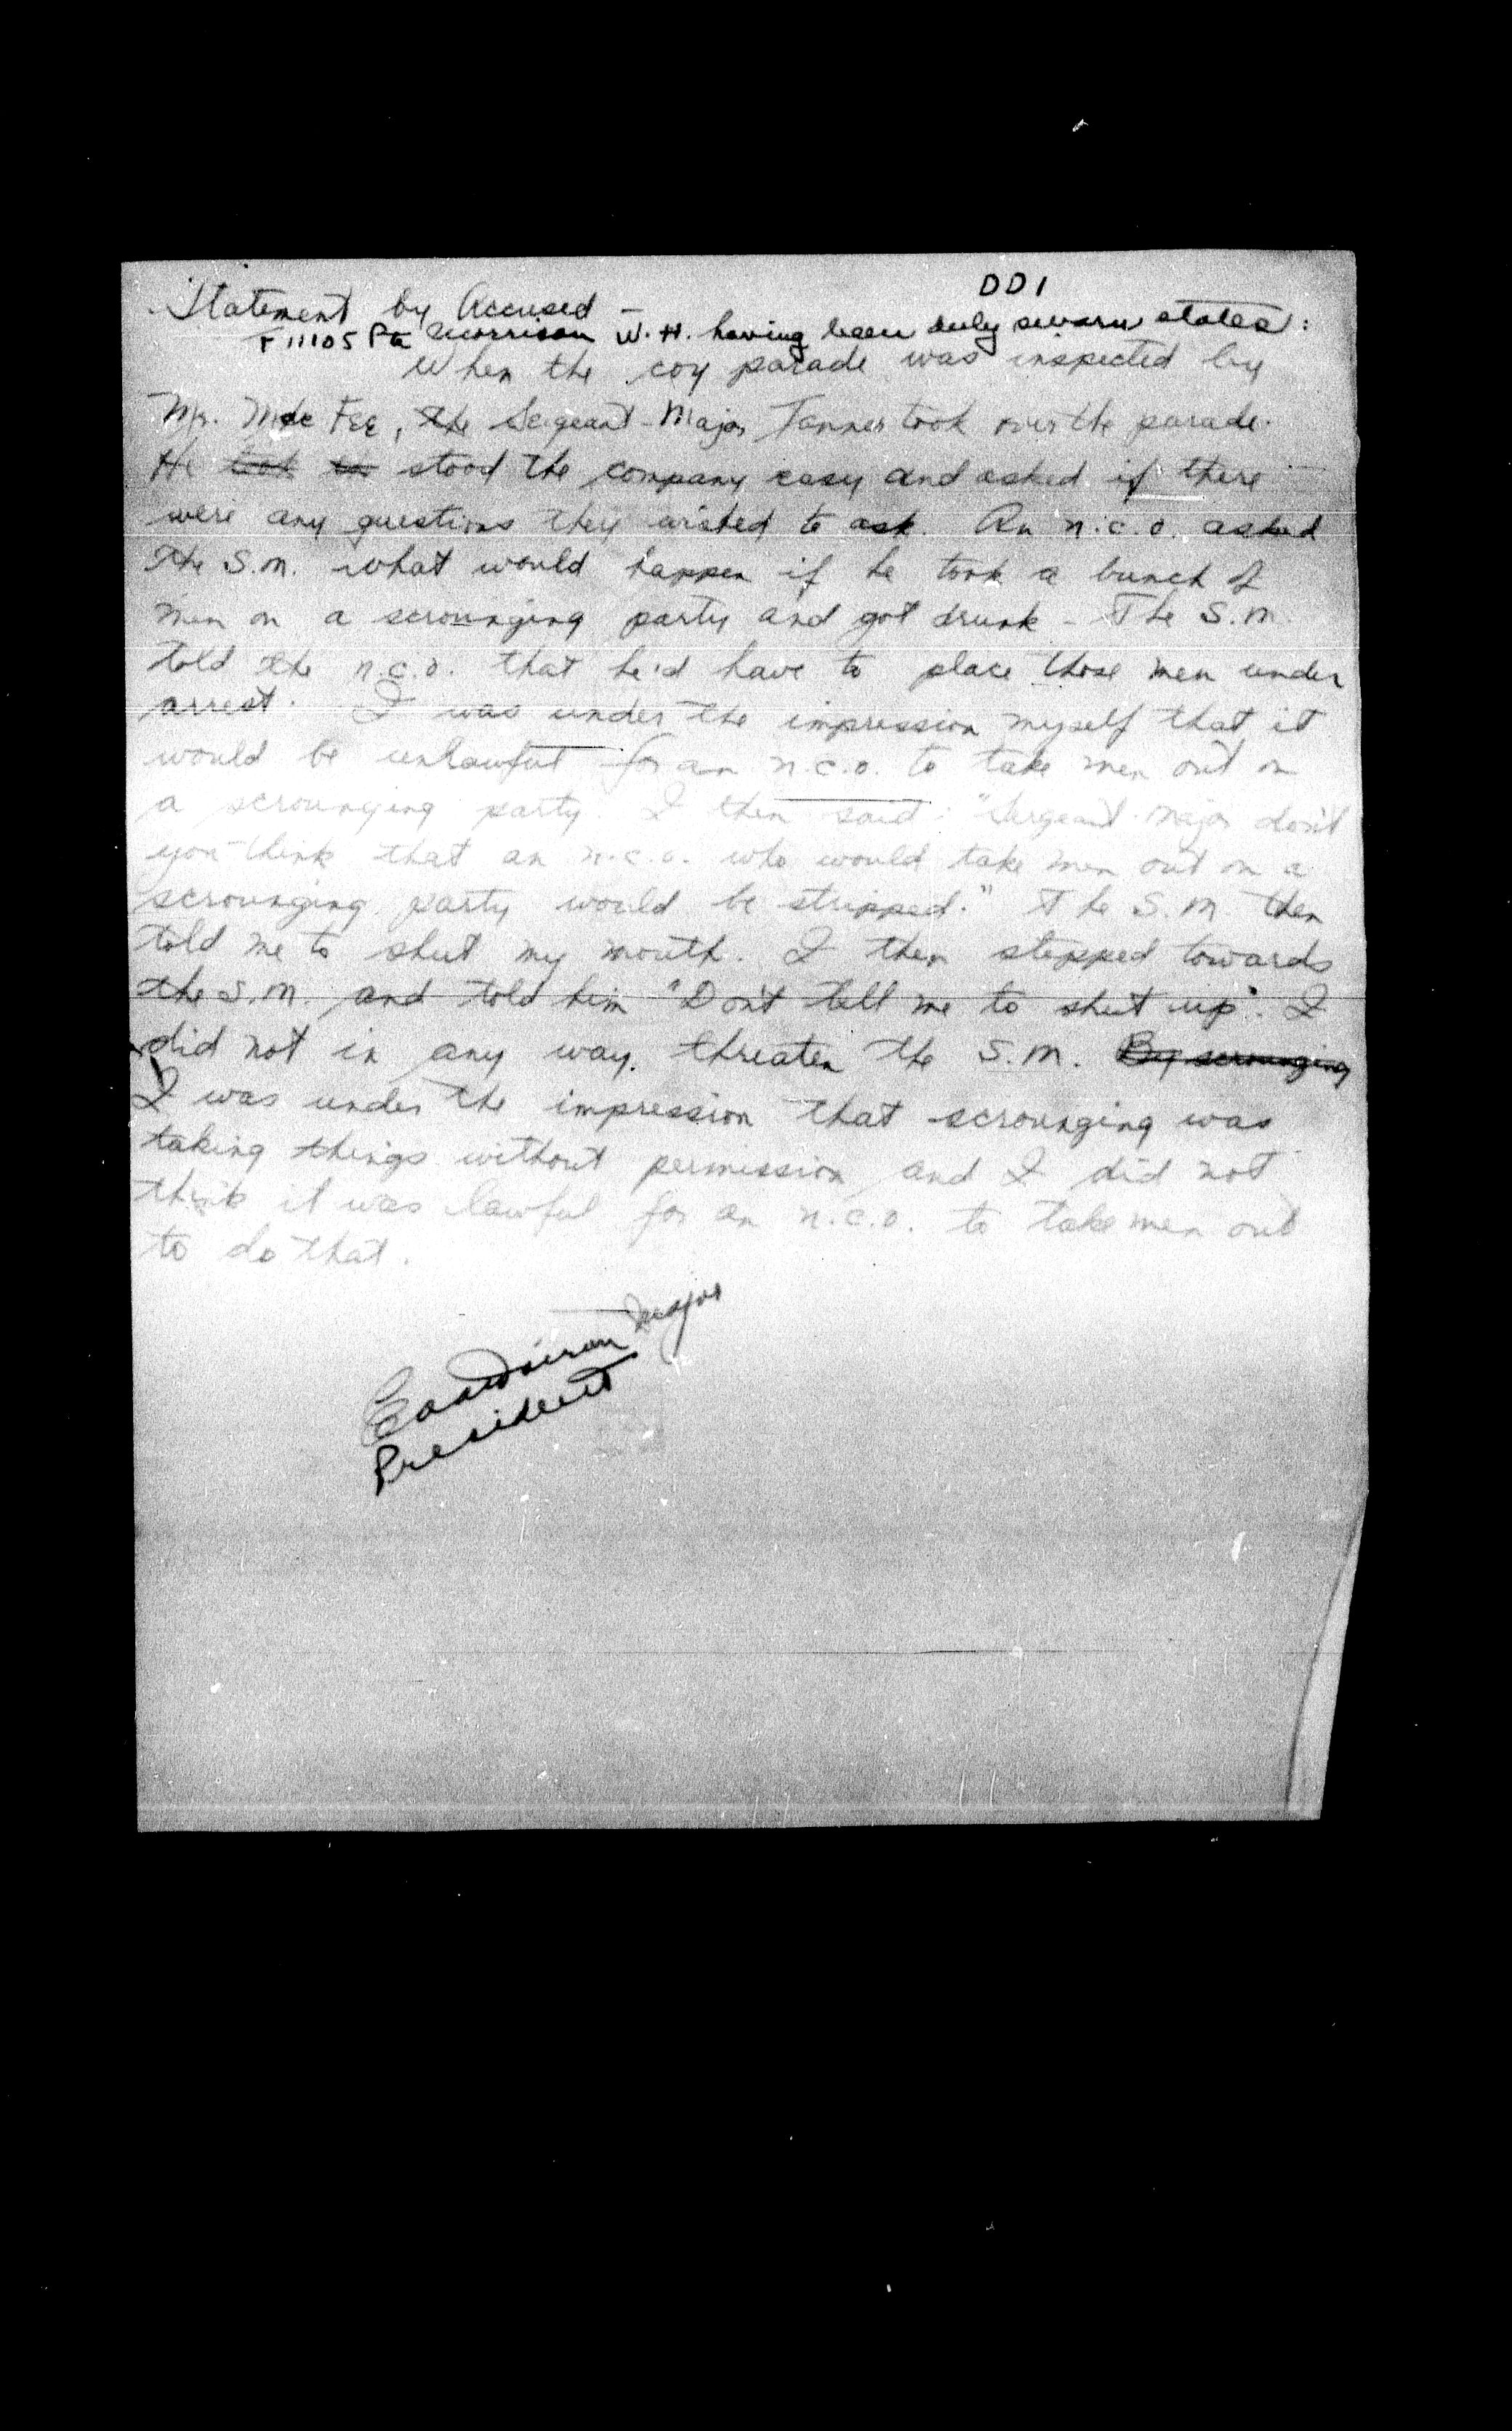 DD1
Statement by Accused -
F 11105 Pte Morrison W.H. having been duly sworn states:
When the coy parade was inspected by
Mr. McFee, the Sergeant-Major Tanner took over the parade.
He took the stood the company easy and asked if there
were any questions they wished to ask. An n.c.o. asked
the S.M. what would happen if he took a bunch of
men on a scrounging party and got drunk - The S.M.
told the n.c.o. that he'd have to place those men under
arrest. I was under the impression myself that it
would be unlawful for an n.c.o. to take men out on
a scrounging party. I then said: "Sergeant-Major don't
you think that an n.c.o. who would take men out on a
scrounging party would be stripped." The S.M. then
told me to shut my mouth. I then stepped towards
the S.M. and told him "Don't tell me to shut up". I
did not in any way threaten the S.M. By scrounging
I was under the impression that scrounging was
taking things without permission and I did not
think it was lawful for an n.c.o. to take men out
to do that.
Major
President